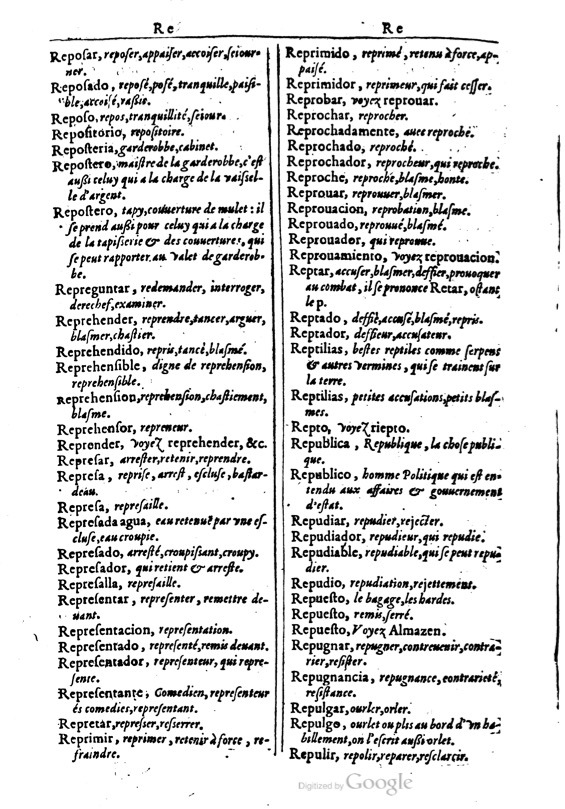 Re
Re
Repoſar, repoſer, appaiſer, accoiſer, ſeiour-
ner.
Repoſado, repoſé, poſé, tranquille, paiſi-
ble, accoiſé, raßis.
Repoſo, repos, tranquillité, ſeiour.
Repoſitorio, repoſitoire.
Repoſteria, garderobbe, cabinet.
Repoſtero, maiſtre de la garderobbe, c'eſt
außi celuy qui a la charge de la vaiſſel-
le d'argent.
Repoſtero, tapy, couuerture de mulet : il
ſe prend außi pour celuy qui a la charge
de la tapiſſerie & des couuertures, qui
ſe peut rapporter au valet de garderob-
be.
Repreguntar, redemander, interroger,
derechef, examiner.
Reprehender, reprendre, tancer, arguer,
blaſmer, chaſtier.
Reprehendido, repris, tancé, blaſmé.
Reprehenſible, digne de reprehenſion,
reprehenſible.
Reprehenſion, reprehenſion, chaſtiement,
blaſme.
Reprehenſor, repreneur.
Reprender, voyez reprehender, &c.
Repreſar, arreſter, retenir, reprendre.
Repreſa, repriſe, arreſt, eſcluſe, baſtar-
deau.
Repreſa, repreſaille.
Repreſada agua, eau retenue par vne eſ-
cluſe, eau croupie.
Repreſado, arreſté, croupiſſant, croupy.
Repreſador, qui retient & arreſte.
Repreſalla, repreſaille.
Repreſentar, repreſenter, remettre de-
uant.
Repreſentacion, repreſentation.
Repreſentado, repreſenté, remis deuant.
Repreſentador, repreſenteur, qui repre-
ſente.
Repreſentante, Comedien, repreſenteur
és comedies, repreſentant.
Repretar, repreſſer, reſſerrer.
Reprimir, reprimer, retenir à force, re-
fraindre.
Reprimido, reprimé, retenu à force, ap-
paiſé.
Reprimidor, reprimeur, qui fait ceſſer.
Reprobar, voyez reprouar.
Reprochar, reprocher.
Reprochadamente, auec reproche.
Reprochado, reproché.
Reprochador, reprocheur, qui reproche.
Reproche, reproche, blaſme, honte.
Reprouar, reprouuer, blaſmer.
Reprouacion, reprobation, blaſme.
Reprouado, reprouué, blaſmé.
Reprouador, qui reprouue.
Reprouamiento, voyez reprouacion.
Reptar, accuſer, blaſmer, deffier, prouoquer
au combat, il ſe prononce Retar, oſtant
le p.
Reptado, deffié, accuſé, blaſmé, repris.
Reptador, deffieur, accuſateur.
Reptilias, beſtes reptiles comme ſerpens
& autres vermines, qui ſe trainent ſur
la terre.
Reptilias, petites accuſations, petits blaſ-
mes.
Repto, voyez riepto.
Republica, Republique, la choſe publi-
que.
Republico, homme Politique qui est en-
tendu aux affaires & gouuernement
d'eſtat.
Repudiar, repudier, rejecter.
Repudiador, repudieur, qui repudie.
Repudiable, repudiable, qui ſe peut repu
dier.
Repudio, repudiation, rejettement.
Repueſto, le bagage, les hardes.
Repueſto, remis, ſerré.
Repueſto, Voyez Almazen.
Repugnar, repugner, contreuenir, contra-
rier, reſiſter.
Repugnancia, repugnance, contrarieté,
reſiſtance.
Repulgar, ourler, orler.
Repulgo, ourlet ou plis au bord d'vn ha-
billement, on l'eſcrit außi orlet.
Repulir, repolir, reparer, reſclarcir.
Digitized by Google